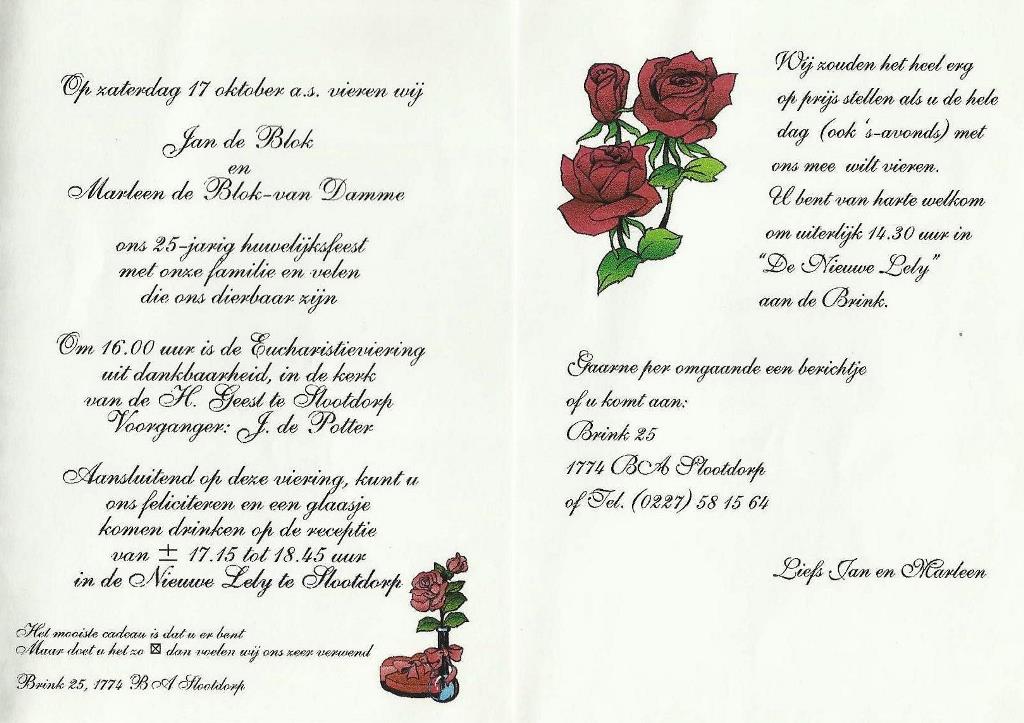 Op zaterdag 17 oktober a.s. vieren wij
Jan de Blok
en
Marleen de Blok-van Damme
ons 25-jarig huwelijksfeest
met onze familie en velen
die ons dierbaar zijn
Om 16.00 uur is de Eucharistieviering
uit dankbaarheid, in de kerk
van de H. Geest te Slootdorp
Voorganger: J. de Potter
Aansluitend op deze viering, kunt u
ons feliciteren en een glaasje
komen drinken op de receptie
van ± 17.15 tot 18.45 uur
in de Nieuwe Lely te Slootdorp
Het mooiste cadeau is dat u er bent
Maar doet u het zo ☒ dan voelen wij ons zeer verwend
Brink 25, 1774 BA Slootdorp
Wij zouden het heel erg
op prijs stellen als u de hele
dag (ook 's-avonds) met
ons mee wilt vieren.
U bent van harte welkom
om uiterlijk 14.30 uur in
"De Nieuwe Lely"
aan de Brink.
Gaarne per omgaande een berichtje
of u komt aan:
Brink 25
1774 BA Slootdorp
of Tel. (0227) 58 15 64
Liefs Jan en Marleen